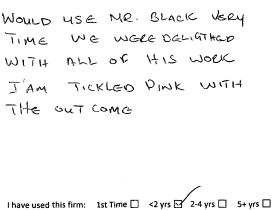 WOULD USE MR. BLACK VERY
TIME WE WERE DELIGTHED
WITH ALL OF HIS WORK
I'AM TICKLED PINK WITH
THE OUT COME
I have used this firm: 1st Time ☐ <2 yrs ☑ 2-4 yrs ☐ 5+ yrs ☐